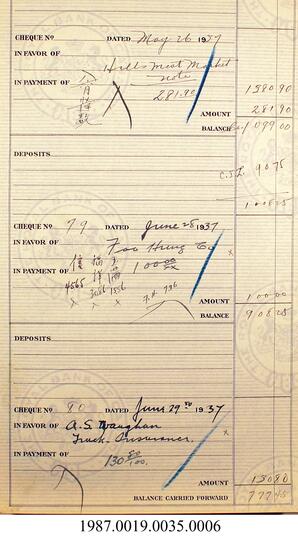 CHEQUE Nº DATED May 26 1937
IN FAVOR OF
Hills Meat Market
note
IN PAYMENT OF
281.90
1380.90
AMOUNT 281.90
BALANCE 1099.00
DEPOSITS
90.75
1008.25
CHEQUE Nº 79 DATED June 28 1937
IN FAVOR OF Foo Hung Co.
IN PAYMENT OF 100 00/XX
AMOUNT 100.00
BALANCE 908.25
DEPOSITS
CHEQUE Nº 80 DATED June 29th 1937
IN FAVOR OF A. S. Vaughan
Truck Insurance.
IN PAYMENT OF 130 80/100.
AMOUNT 130.80
BALANCE CARRIED FORWARD 777.45
1987.0019.0035.0006